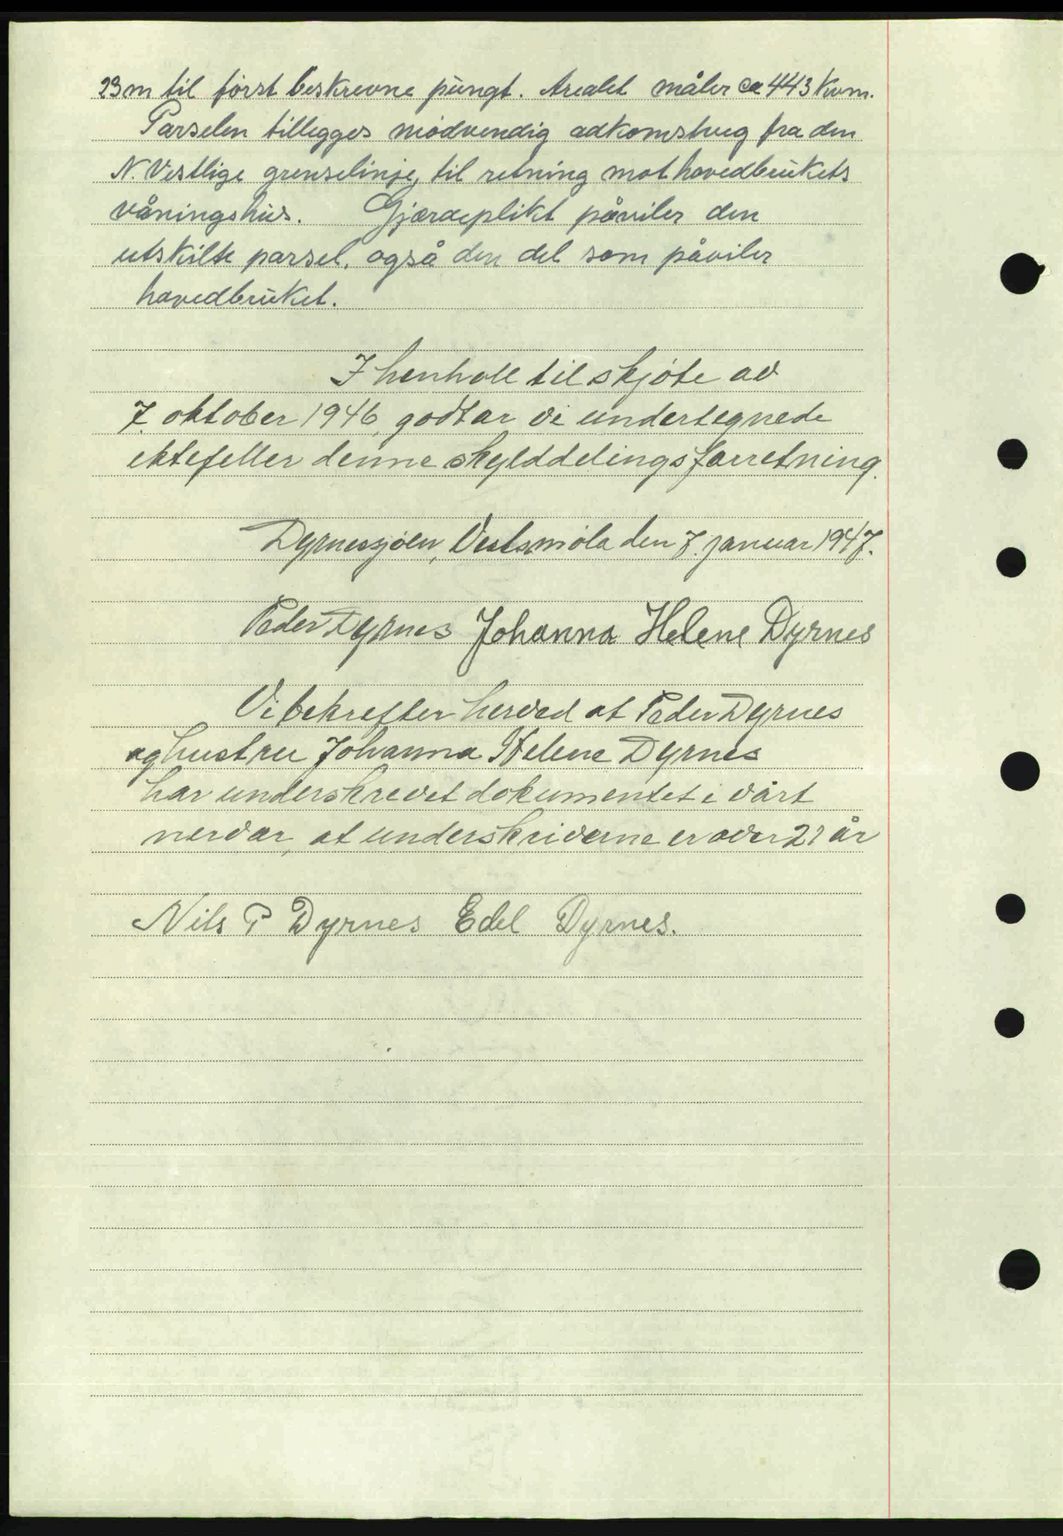 23m til först beskrevne pungt. Arealet måler ca 443 Kvm.
Parselen tillegges nødvendig adkomstveg fra den
N. Vestlige grenselinje, til retning mot hovedbrukets
våningshus. Gjærdeplikt påviler den
utskilte parsel, også den del som påviler
hovedbruket.
I henholl til skjöte av
7. oktober 1946, godtar vi undertegnede
ektefeller denne skylddelingsforretning.
Dyrnessjöen, Vestsmöla den 7. januar 1947.
Peder Dyrnes Johanna Helene Dyrnes
Vi bekrefter herved at Peder Dyrnes
og hustru Johanna Helene Dyrnes
har underskrevet dokumentet i vårt
nervær, at underskriverne er over 21 år
Nils P Dyrnes Edel Dyrnes.